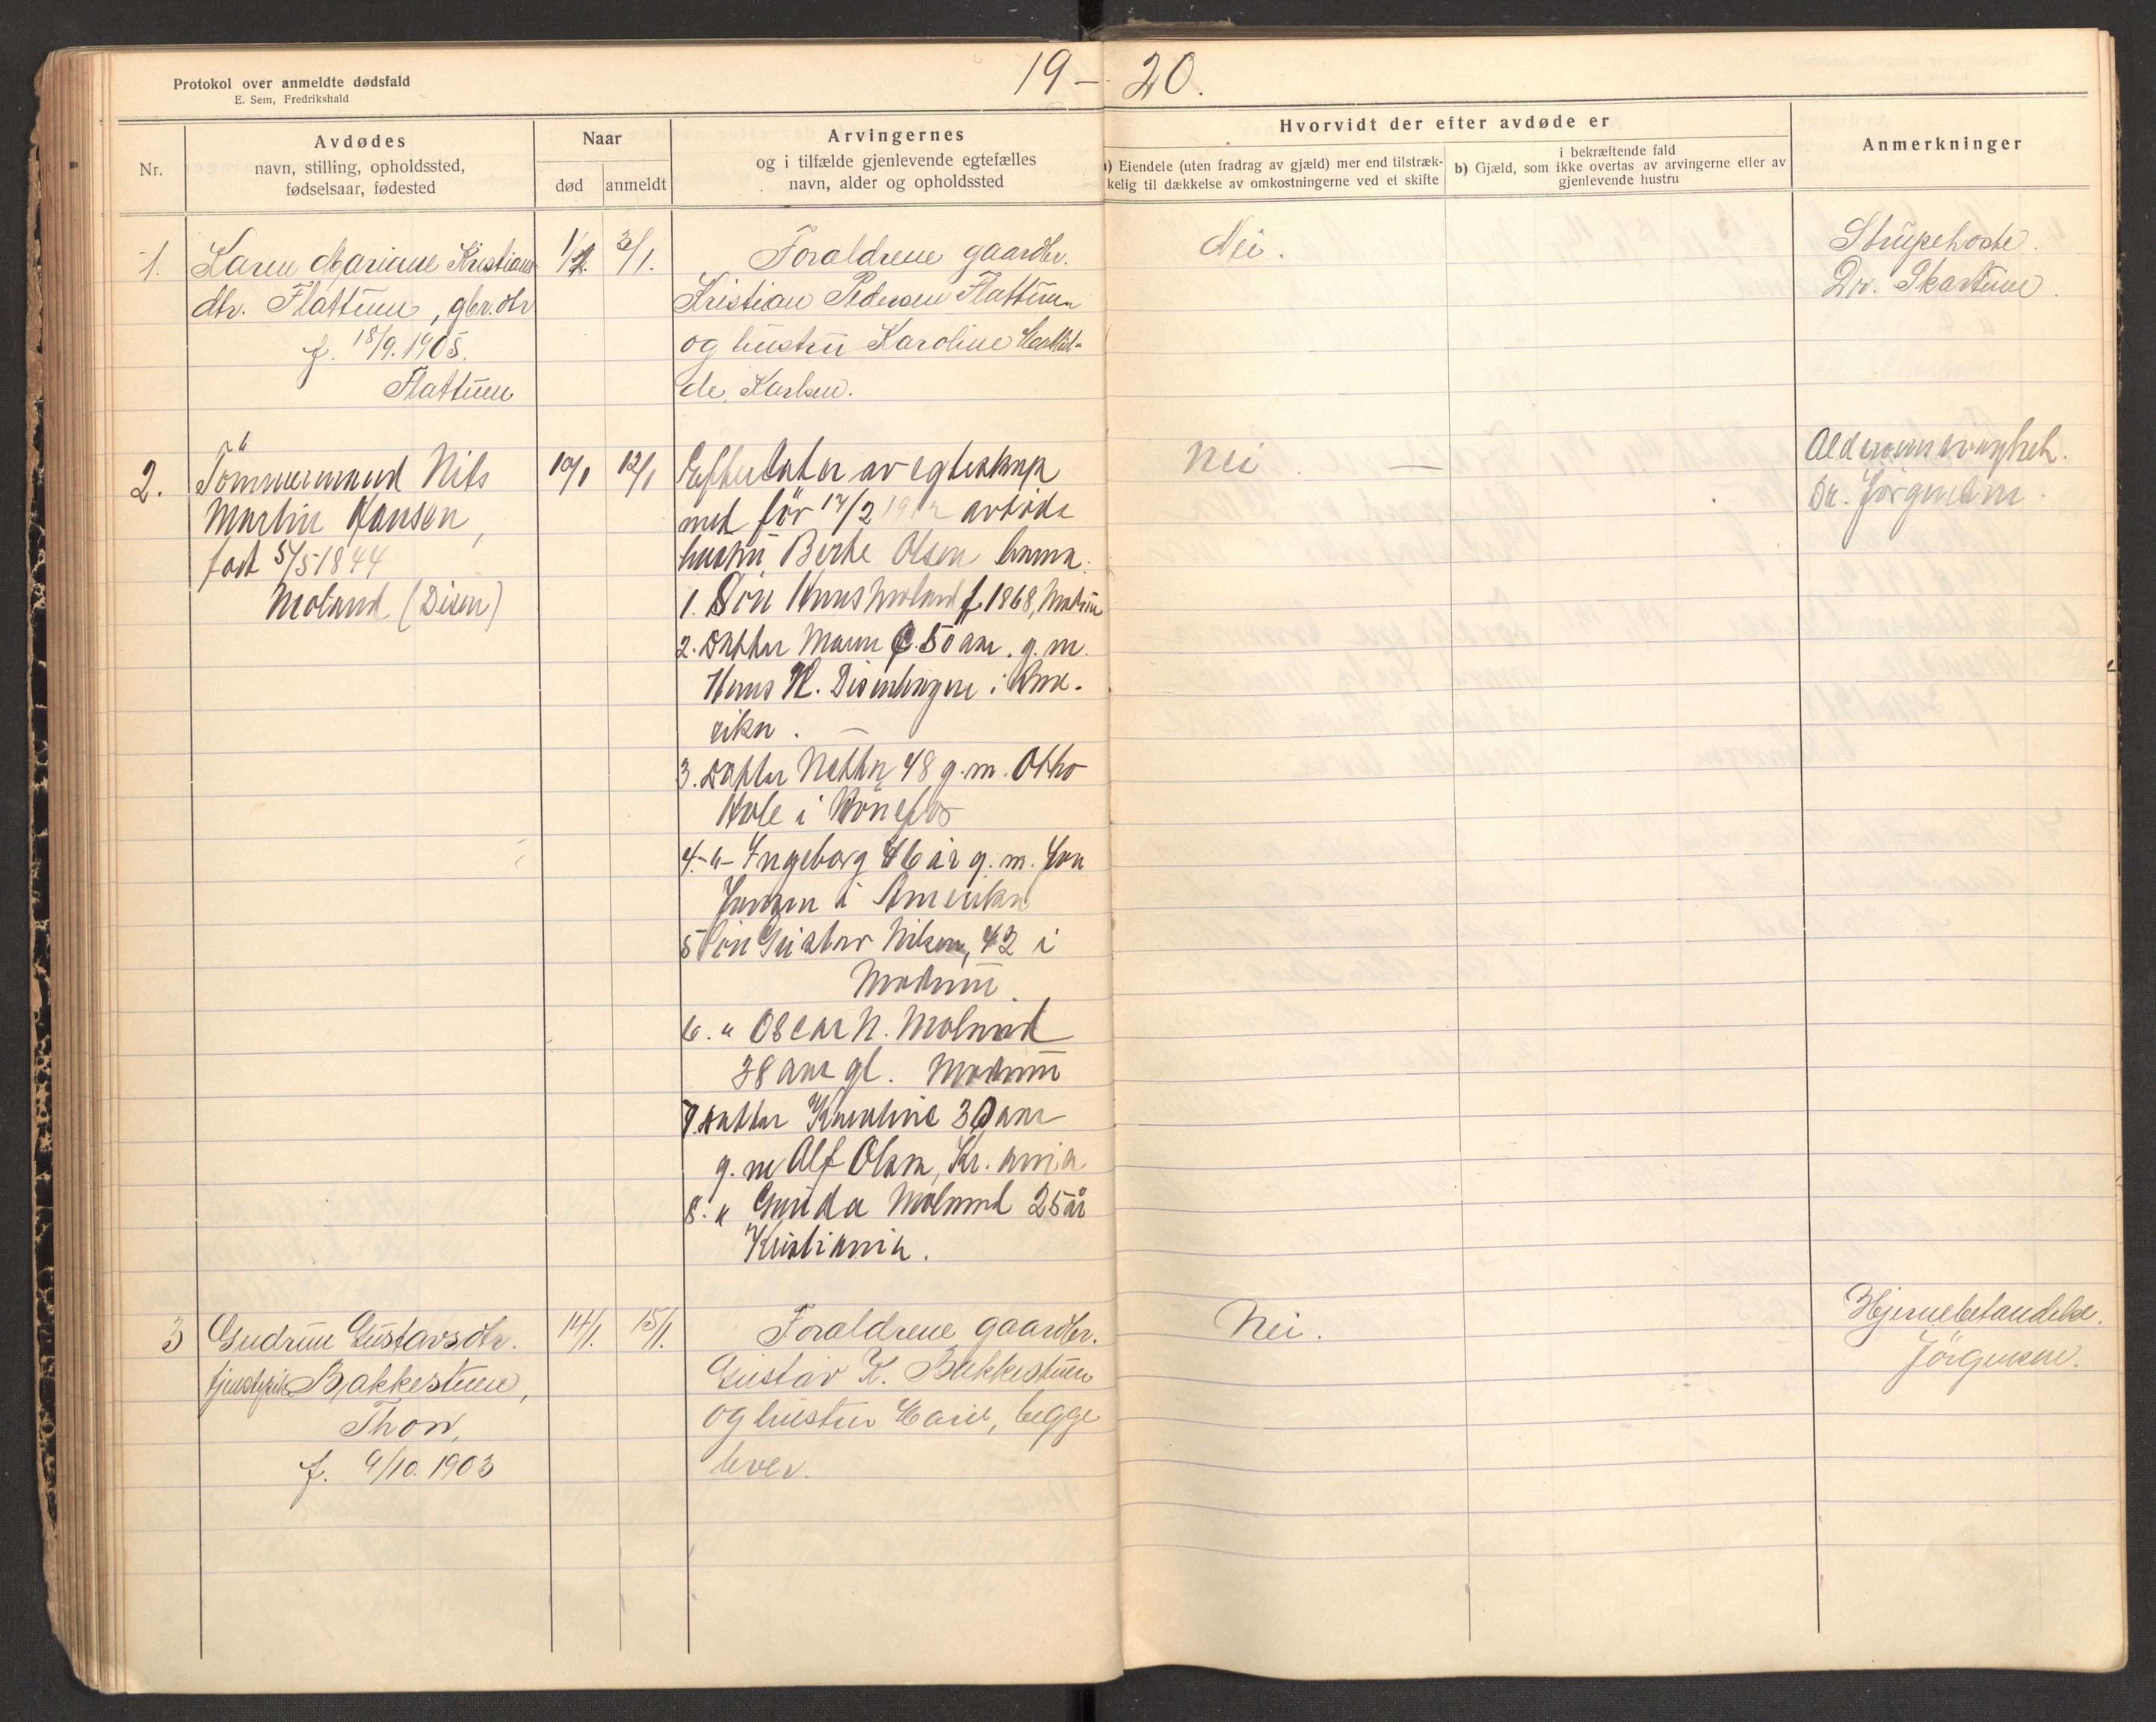 Protokol over anmeldte dødsfald
E. Sem, Fredrikshald
19 – 20.
Nr.
Avdødes
navn, stilling, opholdssted,
fødselsaar, fødested
Naar
død
anmeldt
Arvingernes
og i tilfælde gjenlevende egtefælles
navn, alder og opholdssted
Hvorvidt der efter avdøde er
a) Eiendele (uten fradrag av gjæld) mer end tilstræk-
kelig til dækkelse av omkostningerne ved et skifte
i bekræftende fald
b) Gjæld, som ikke overtas av arvingerne eller av
gjenlevende hustru
Anmerkninger
1.
Karen Marinne Kristians-
dtr. Flattum, gbr.dtr
f. 18/9. 1905.
Flattum
1/1.
3/1.
Foraldrene gaardbr.
Kristian Pedersen Flattum
og hustru Karoline
de, Karlsen.
Nei.
Strupehoste.
Dr. Skartum.
2.
Tömmermand Nils
Martin Hansen,
født 5/5 1844
Moland (Disen)
10/1
12/1
Efterlater av egteskap
med før 17/2 19 avdøde
hustru Berte Olsen barna:
1. Sön Hans Moland f. 1868, Modum
2. Datter Maren C. 50 aar. g. m.
Hans H. Disenhagen i Ame-
rika. —
3. Datter Netta 48 g. m. Otto
Hole i Hönefos
4. -"- Ingeborg 46 år g. m. Jon
Jensen i Amerika
5 Sön Gustav Nilsen, 42 i
Modum.
6. " Oscar N. Moland
38 aar gl. Modum
7. Datter Karoline 30 aar
g. m Alf Olsen, Kr.ania
8. " Gunda Moland 25 år
Kristiania.
Nei. —
Alderdomssvaghet.
Dr. Jörgensen.
3
Gudrun Gustavsdtr.
tjenestepike Bakkestuen,
Thon,
f. 9/10. 1903
14/1.
15/1.
Foraldrene gaardbr.
Gustav K. Bakkestuen
og hustru Marie, begge
lever.
Nei.
Hjernebetændelse.
Jörgensen.